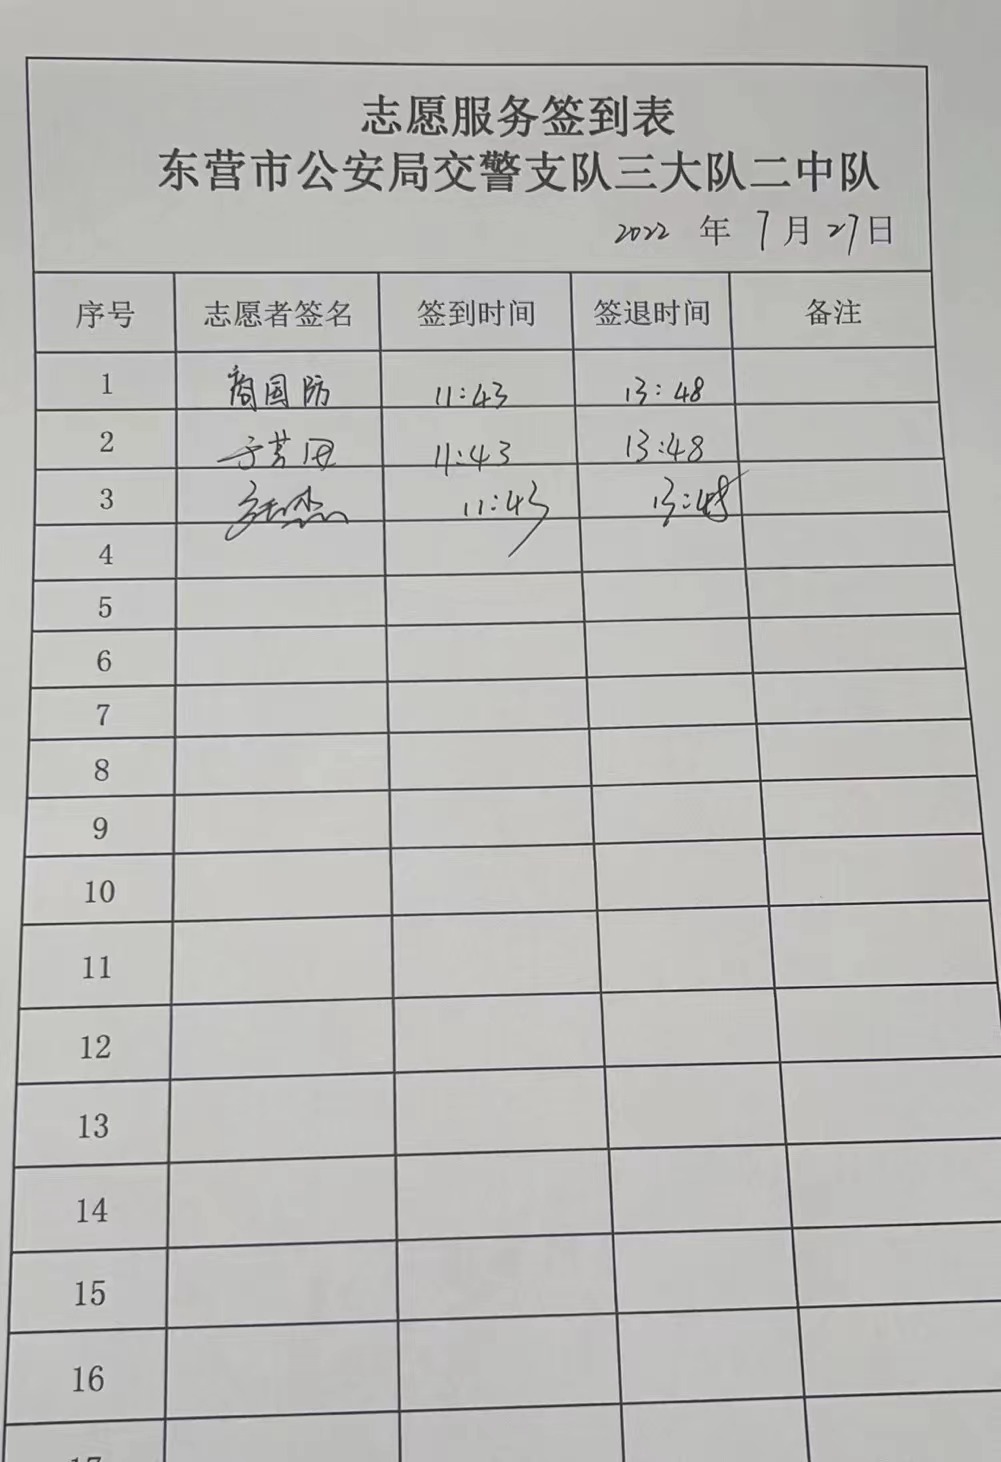 志愿服务签到表
东营市公安局交警支队三大队二中队
2022 年 7月27日
序号 志愿者签名 签到时间 签退时间 备注
1 商国防 11:43 13:48
2 11:43 13:48
3 11:43 13:48
4
5
6
7
8
9
10
11
12
13
14
15
16